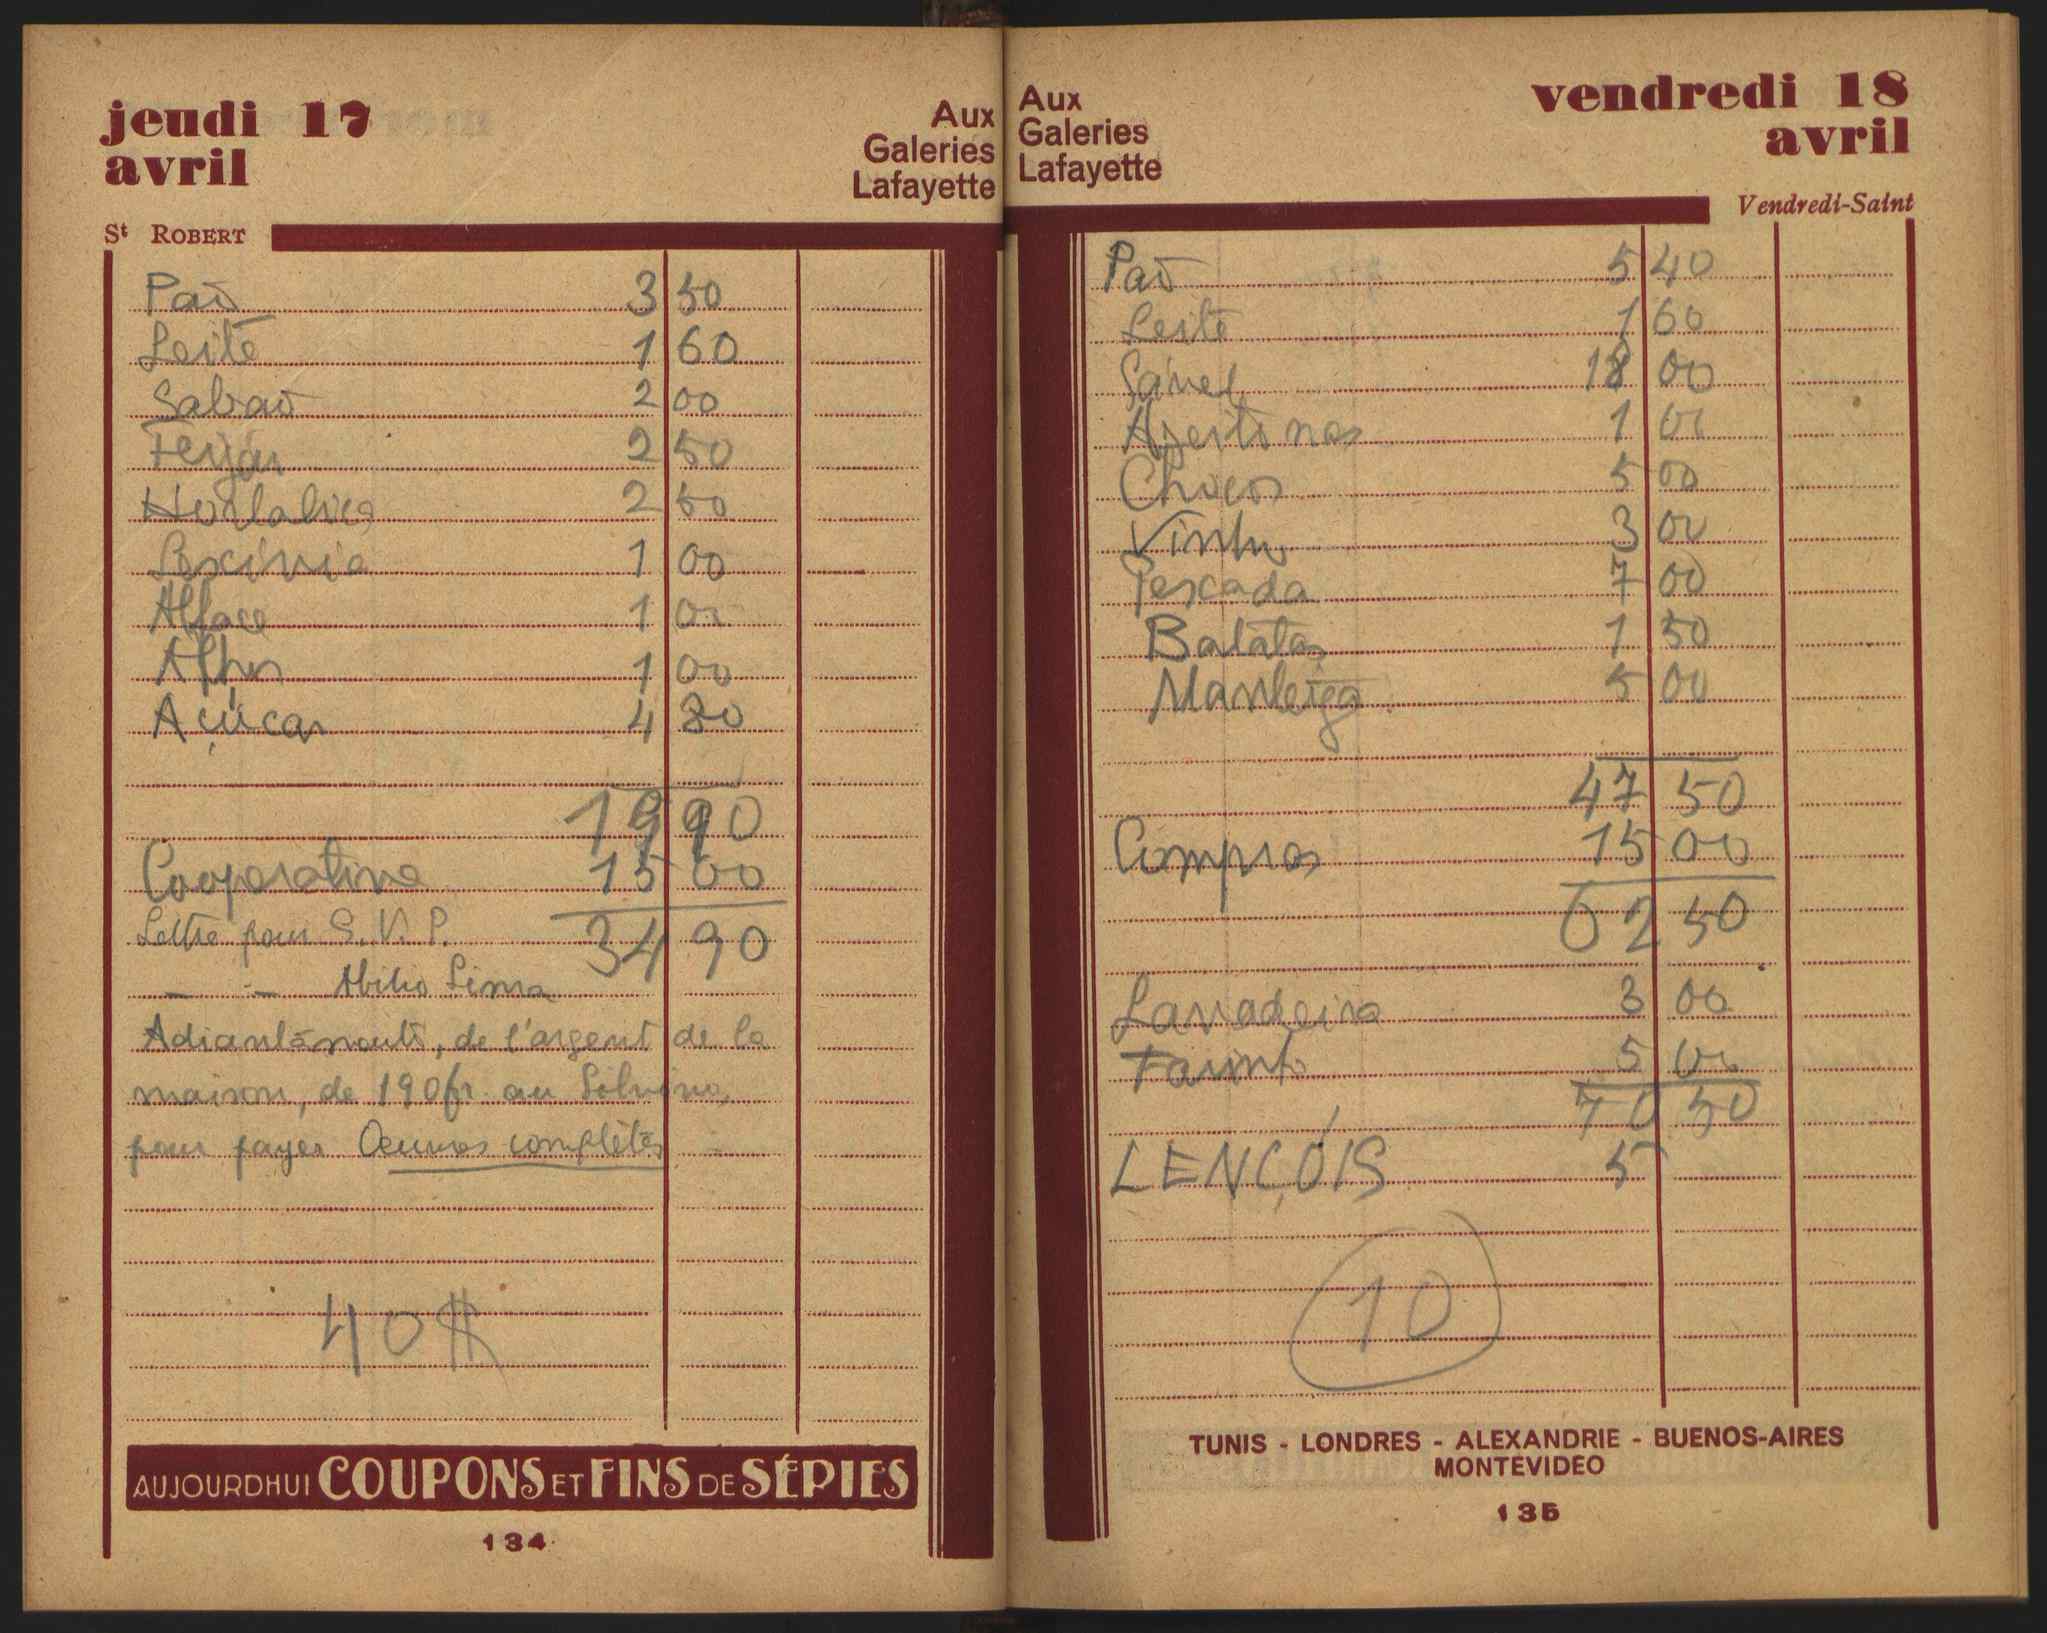 jeudi 17
avril
Aux
Galeries
Lafayette
St ROBERT
Paõ 3 50
Leite 1 60
Sabaõ 2 00
Feijão 2 50
Hortaliça 2 50
Lexívia 1 00
Alface 1 00
Alhos 1 00
Açúcar 4 80
19 90
Cooperativa 15 00
Lettre pour S.V.P. 34 90
— — Abilio Lima
de l'argent de la
maison, de 190fr. au Silvino,
pour payer Œuvres complètes
40$
AUJOURDHUI COUPONS ET FINS DE SÉRIES
134
Aux
Galeries
Lafayette
vendredi 18
avril
Vendredi-Saint
Paõ 5 40
Leite 1 60
18 00
Azeitonas 1 00
Chocos 5 00
Vinho 3 00
Pescada 7 00
Batatas 1 50
Manteiga 5 00
47 50
Compras 15 00
62 50
Lavadeira 3 00
5 00
70 50
LENÇÓIS 5
10
TUNIS - LONDRES - ALEXANDRIE - BUENOS-AIRES
MONTEVIDEO
135